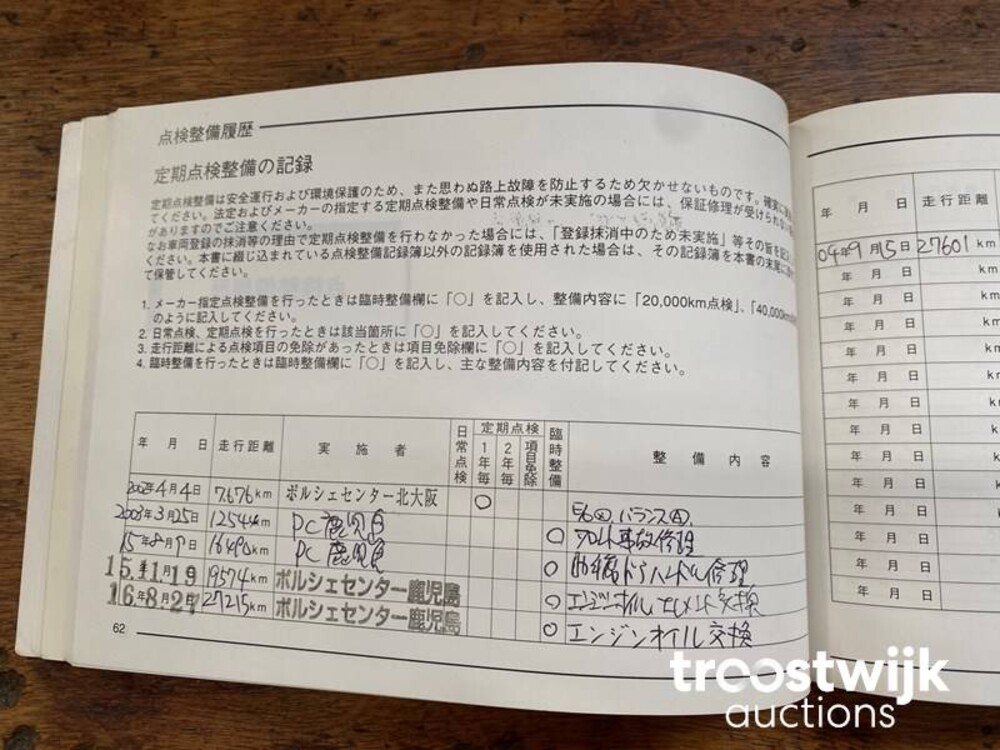 点検整備履歴
定期点検整備の記録
定期点検整備は安全運行および環境保護のため、また思わぬ路上故障を防止するため欠かせないものです。確実に
てください。法定およびメーカーの指定する定期点検整備や日常点検が未実施の場合には、保証修理が受けられない
がありますのでご注意ください。
なお車両登録の抹消等の理由で定期点検整備を行わなかった場合には、「登録抹消中のため未実施」等その旨を記入
ください。本書に綴じ込まれている点検整備記録簿以外の記録簿を使用された場合は、その記録簿を本書の末尾に
て保管してください。
1. メーカー指定点検整備を行ったときは臨時整備欄に「○」を記入し、整備内容に「20,000km点検」、「40,000km
のように記入してください。
2. 日常点検、定期点検を行ったときは該当箇所に「○」を記入してください。
3. 走行距離による点検項目の免除があったときは項目免除欄に「○」を記入してください。
4. 臨時整備を行ったときは臨時整備欄に「○」を記入し、主な整備内容を付記してください。
年 月 日 走行距離 実施者 日常点検 定期点検 1年毎 2年毎 項目免除 臨時整備 整備内容
2002年4月4日 7,676km ポルシェセンター北大阪 ○
2003年3月25日 12544km PC鹿児島 ○ バランス
15年8月9日 16490km PC鹿児島 ○ 事故修理
15.11.19 19574km ポルシェセンター鹿児島 ○ 修理
16.8.27 27215km ポルシェセンター鹿児島 ○ エンジンオイル エレメント交換
○ エンジンオイル交換
62
年 月 日 走行距離
04年9月15日 27601km
年 月 日 km
年 月 日 km
年 月 日 km
年 月 日 km
年 月 日 km
年 月 日 km
年 月 日 km
年 月 日 km
年 月 日 k
年 月 日 k
年 月 日
年 月 日
年 月 日
troostwijk
auctions